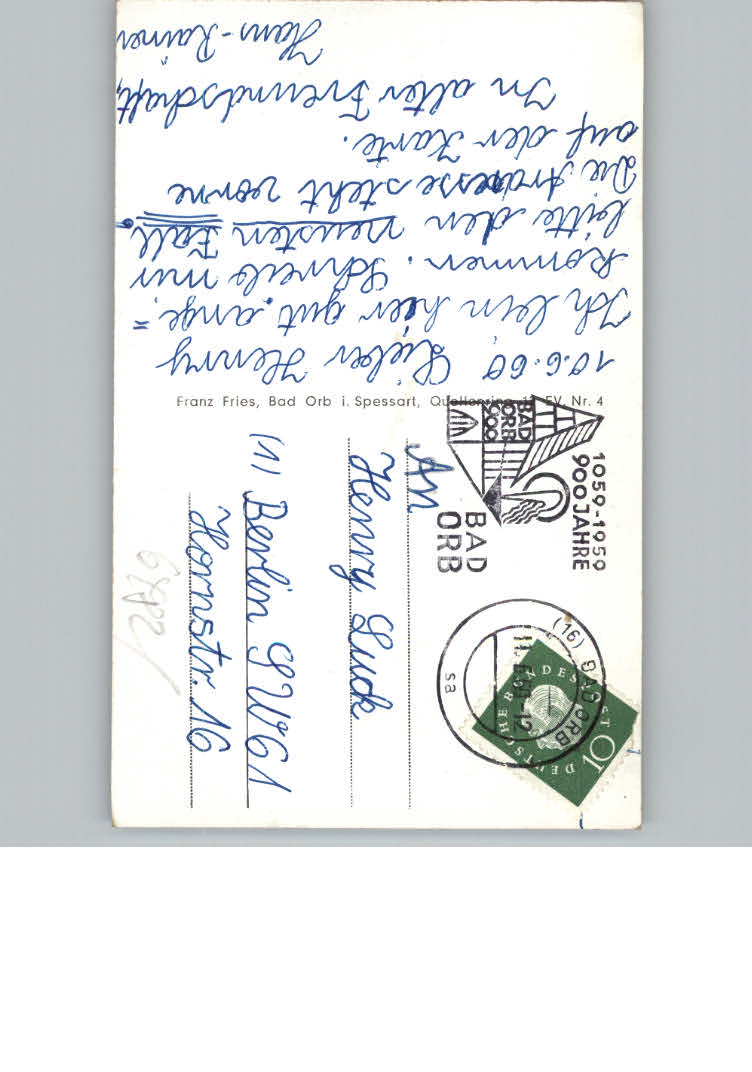 10.6.60 Lieber Henry
Ich bin hier gut ange=
kommen. Schreib mir
bitte den neusten Fall
Die Adresse steht vorne
auf der Karte.
In alter Freundschaft,
Hans-Rainer
Franz Fries, Bad Orb i. Spessart, Quellenring 11 EV. Nr. 4
An
Henry Luck
(1) Berlin SW61
Hornstr. 16
1059-1959
900 JAHRE
BAD
ORB
900
BAD
ORB
(16) BAD ORB
11.6.60-12
sa
DEUTSCHE BUNDESPOST
10